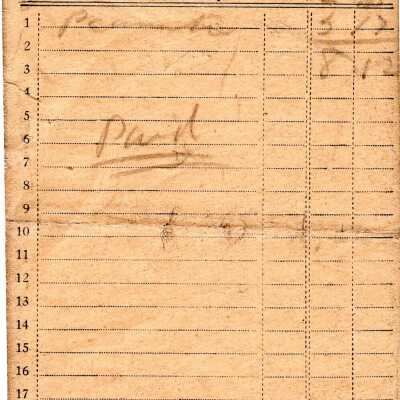 1
2
3 8 12
4
5
Paid
6
7
8
9
10
11
12
13
14
15
16
17